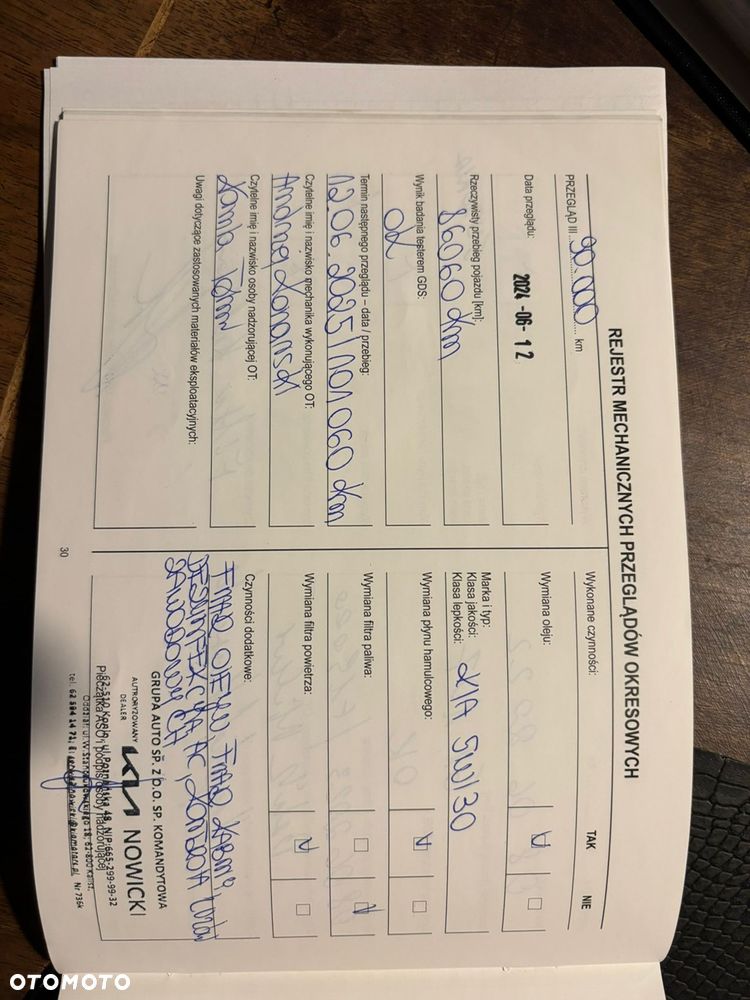 REJESTR MECHANICZNYCH PRZEGLĄDÓW OKRESOWYCH
PRZEGLĄD III 90.000 km
Data przeglądu:
2024-06-12
Rzeczywisty przebieg pojazdu [km]:
86060 km
Wynik badania testerem GDS:
OK
Termin następnego przeglądu – data / przebieg:
12.06.2025/101060 km
Czytelne imię i nazwisko mechanika wykonującego OT:
Andrzej
Czytelne imię i nazwisko osoby nadzorującej OT:
Uwagi dotyczące zastosowanych materiałów eksploatacyjnych:
Wykonane czynności: TAK NIE
Wymiana oleju: V
Marka i typ:
Klasa jakości: KIA 5W/30
Klasa lepkości:
Wymiana płynu hamulcowego: V
Wymiana filtra paliwa: V
Wymiana filtra powietrza: V
Czynności dodatkowe:
FILTR OLEJU, FILTR KABINY,
DEZYNFEKCJA AC, KONTROLA
GRUPA AUTO SP. Z O.O. SP. KOMANDYTOWA
AUTORYZOWANY DEALER KIA NOWICKI
62-510 Konin, ul. Poznańska 49, NIP:665-299-99-32
Pieczątka ASO i podpis osoby nadzorującej
62-800 Kalisz
Nr 736k
30
OTOMOTO